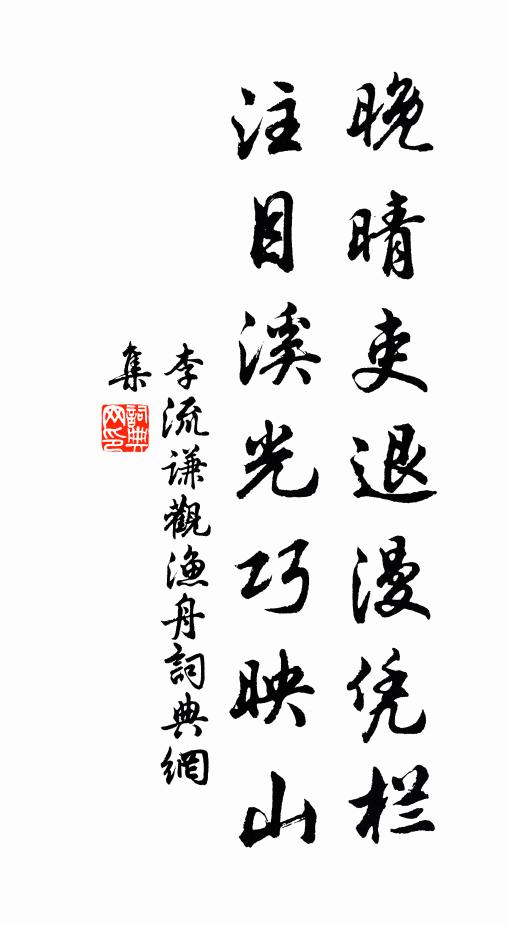 晚晴吏退漫凭栏
注目溪光巧映山
李流谦觀渔舟詞典網
集
詞典网印